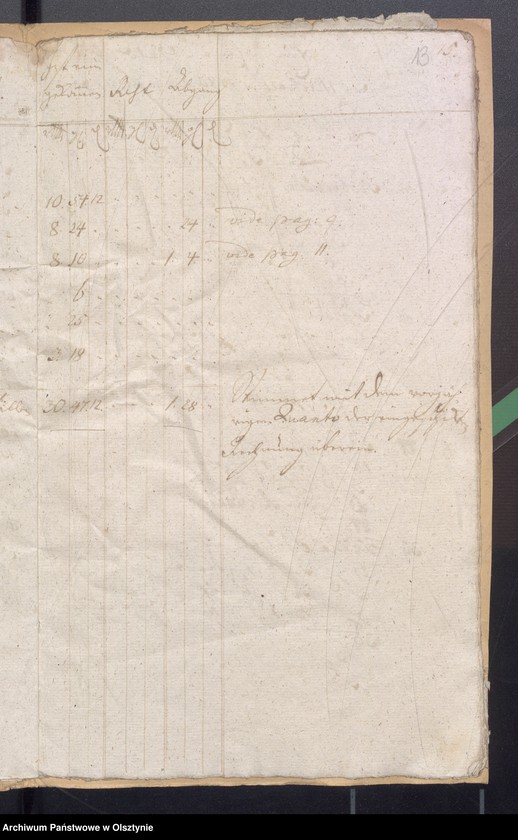 13 5.
Ist ein
gekommen Rest Abgang
10. 54 12
8. 24 . 24 . vide pag: 9.
8. 10 1. 4. vide pag. 11.
6
25
18
30. 47 12 1. 28
Stimmet mit dem vorjäh
rigen Quanto der
Rechnung überein.
Archiwum Państwowe w Olsztynie